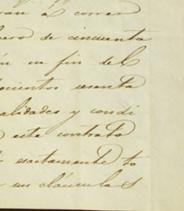 van á correr
bero de cincuenta
en un fin del
cuentos cuenta
alidades y condi
este contrato
exactamente to
un cláusulas